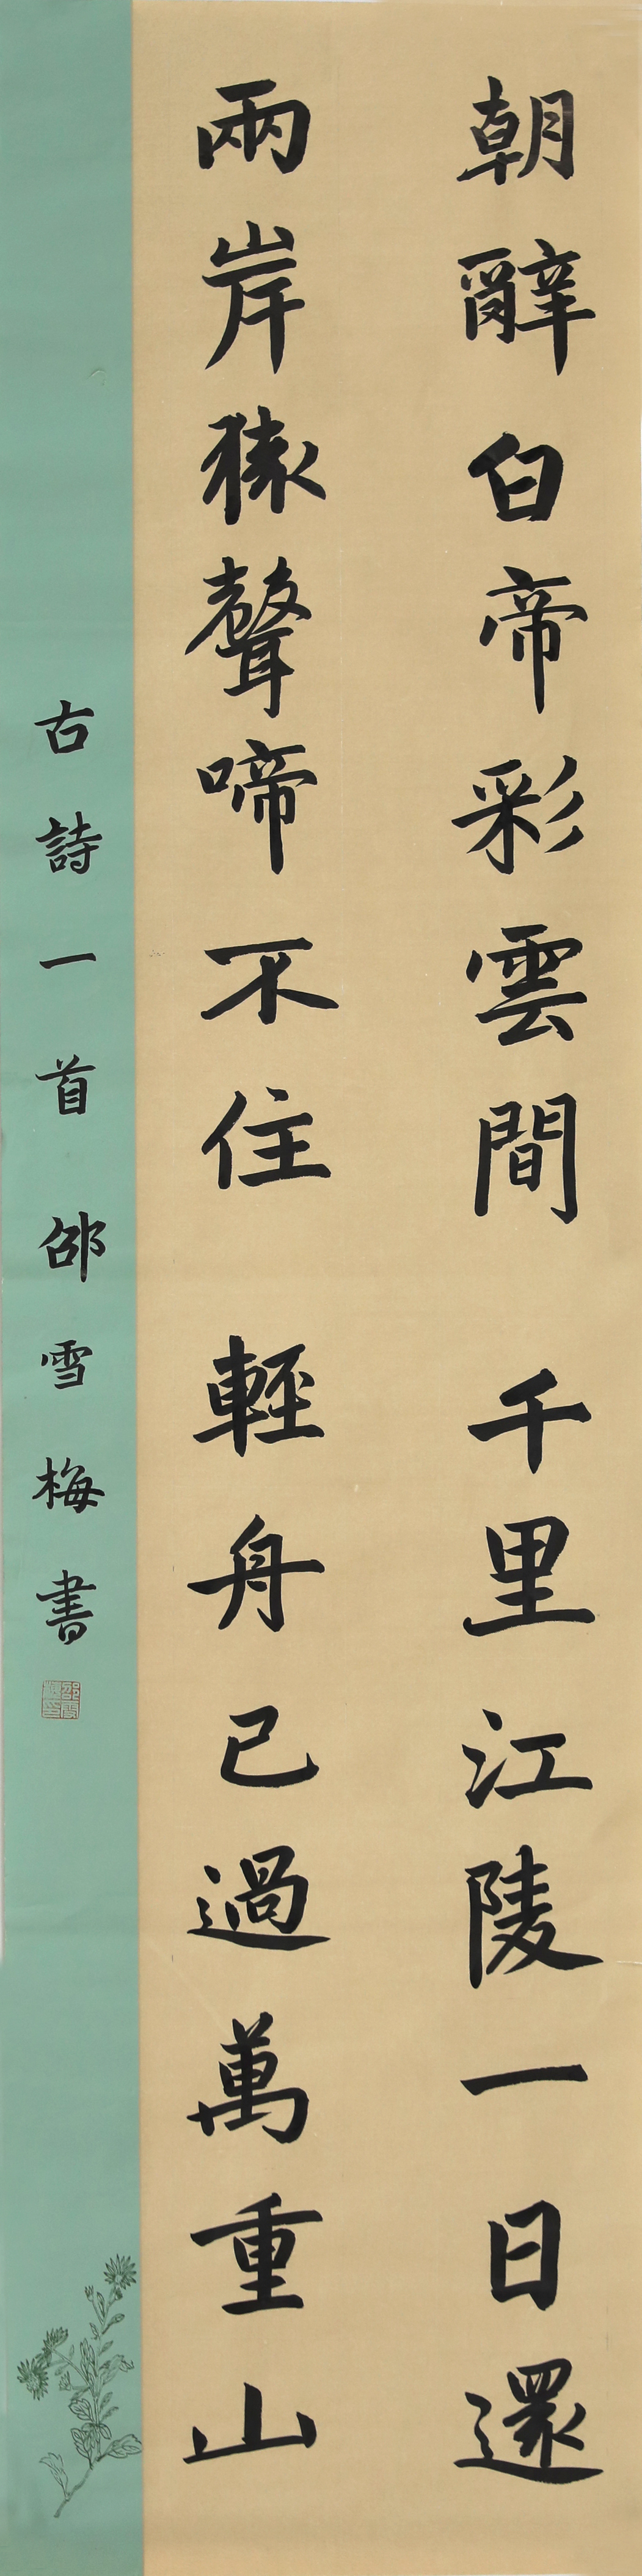 朝辭白帝彩雲間 千里江陵一日還
兩岸猿聲啼不住 輕舟已過萬重山
古詩一首 邵雪梅書
邵雪梅印